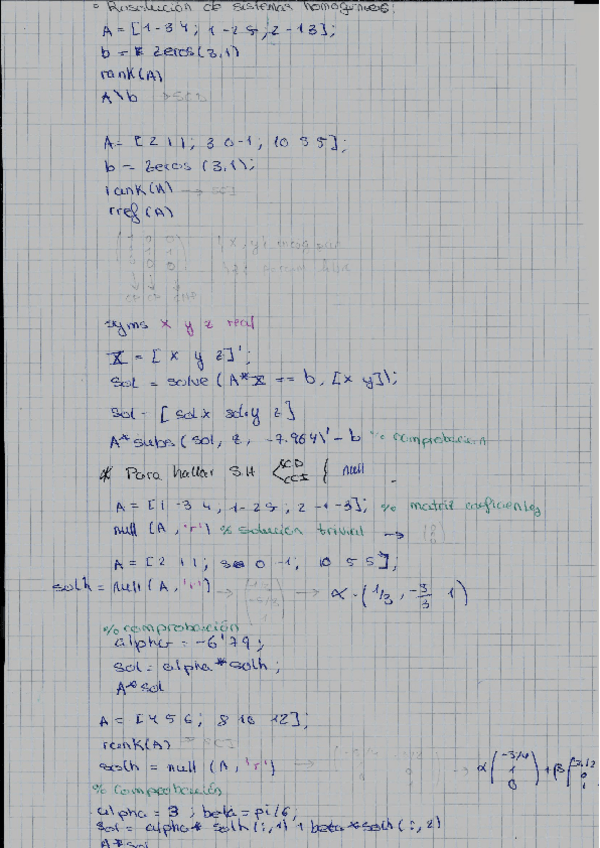 ◦ Resolución de sistemas homogéneos:
A = [1 -3 4; 1 -2 5; 2 -1 3];
b = zeros(3,1)
rank(A)
A\b → SCD
A = [2 1 1; 3 0 -1; 10 5 5];
b = zeros(3,1);
rank(A) → SCI
rref(A)
syms x y z real
X = [x y z]';
Sol = solve(A*X == b, [x y]);
Sol = [sol.x sol.y z]
A*subs(sol, z, -7.964)' - b % comprobación
* Para hallar SH SCD SCI null
A = [1 -3 4, 1 -2 5, 2 -1 -3]; % matriz coeficientes
null (A,'r') % solución trivial →
A = [2 1 1; 3 0 -1; 10 5 5];
solh = null(A,'r') → → α·(1/3, -5/3 1)
% comprobación
alpha = -6'79;
sol = alpha*solh;
A*sol
A = [4 5 6; 8 10 12];
rank(A) → SCI
solh = null (A,'r') → α(-5/4 1 0) + β
% comprobación
alpha = 3; beta = pi/6;
sol = alpha* solh(:,1) + beta*solh(:,2)
A*sol